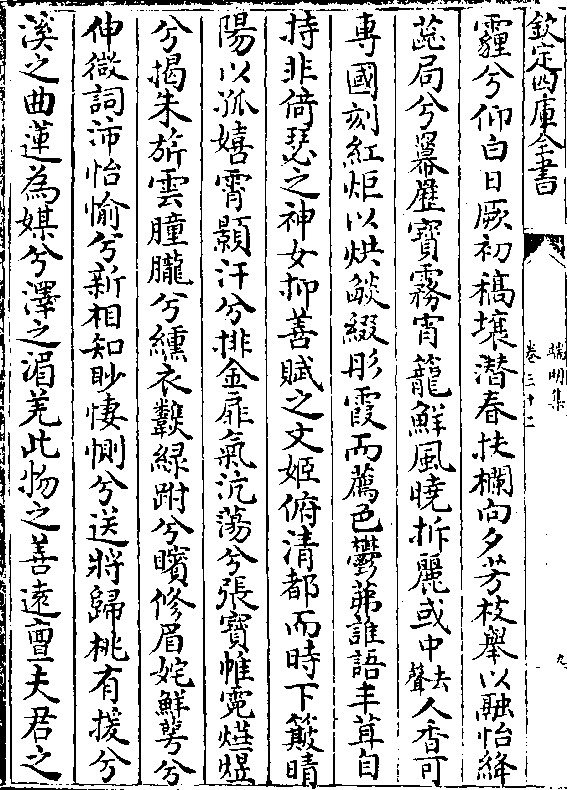 欽定四庫全書
端明集
卷三十二
九
霾兮仰白日厥初稿壤潛春扶欄向夕芳枝舉以融怡絳
蕋局兮羃歴寳霧宵籠鮮風曉拆麗或中去聲人香可
専國刻紅炬以烘燄綴彤霞而薦色鬱茀誰語丰茸自
持非倚瑟之神女抑善賦之文姬俯清都而時下簸晴
陽以孤嬉霄顥汗兮排金扉氣沆蕩兮張寳帷霓爗煜
兮揭朱旂雲朣朧兮纁衣鷇緑跗兮矉修眉姹鮮萼兮
伸微詞沛怡愉兮新相知眇悽惻兮送將歸桃有援兮
溪之曲蓮為媒兮澤之湄羌此物之善逺亶夫君之